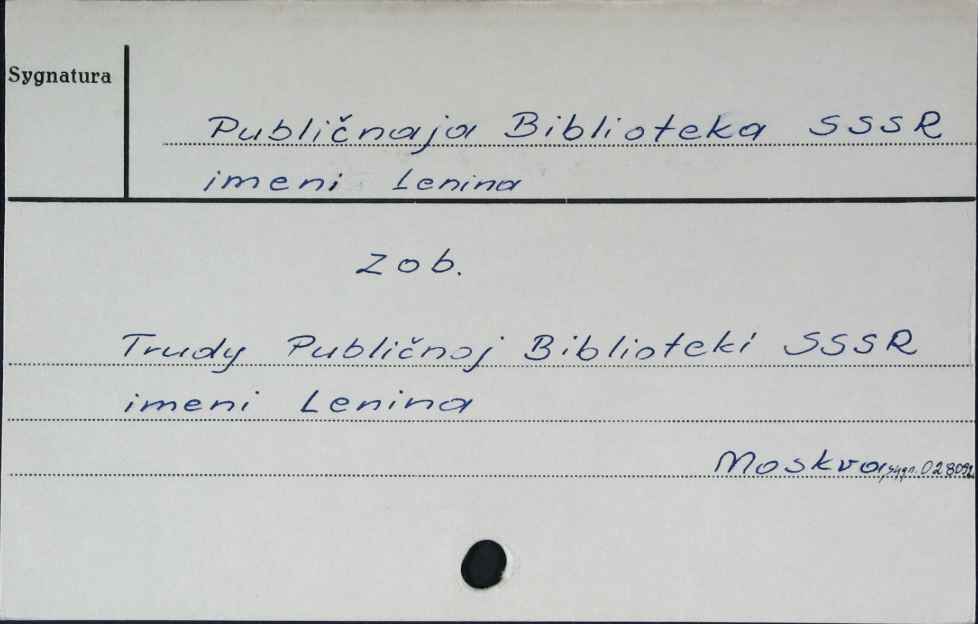 Sygnatura
Publičnaja Biblioteka SSSR
imeni Lenina
zob.
Trudy Publičnoj Biblioteki SSSR
imeni Lenina
Moskva, sygn. 028092